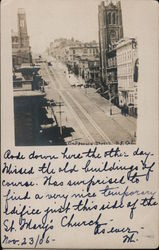 California Street, S.F. Cal.
Rode down here the other day.
Missed the old buildings of
course. Was surprised to
find a very nice temporary
edifice just this side of the
St. Mary's Church.
As ever
M.
Nov. 23/06-